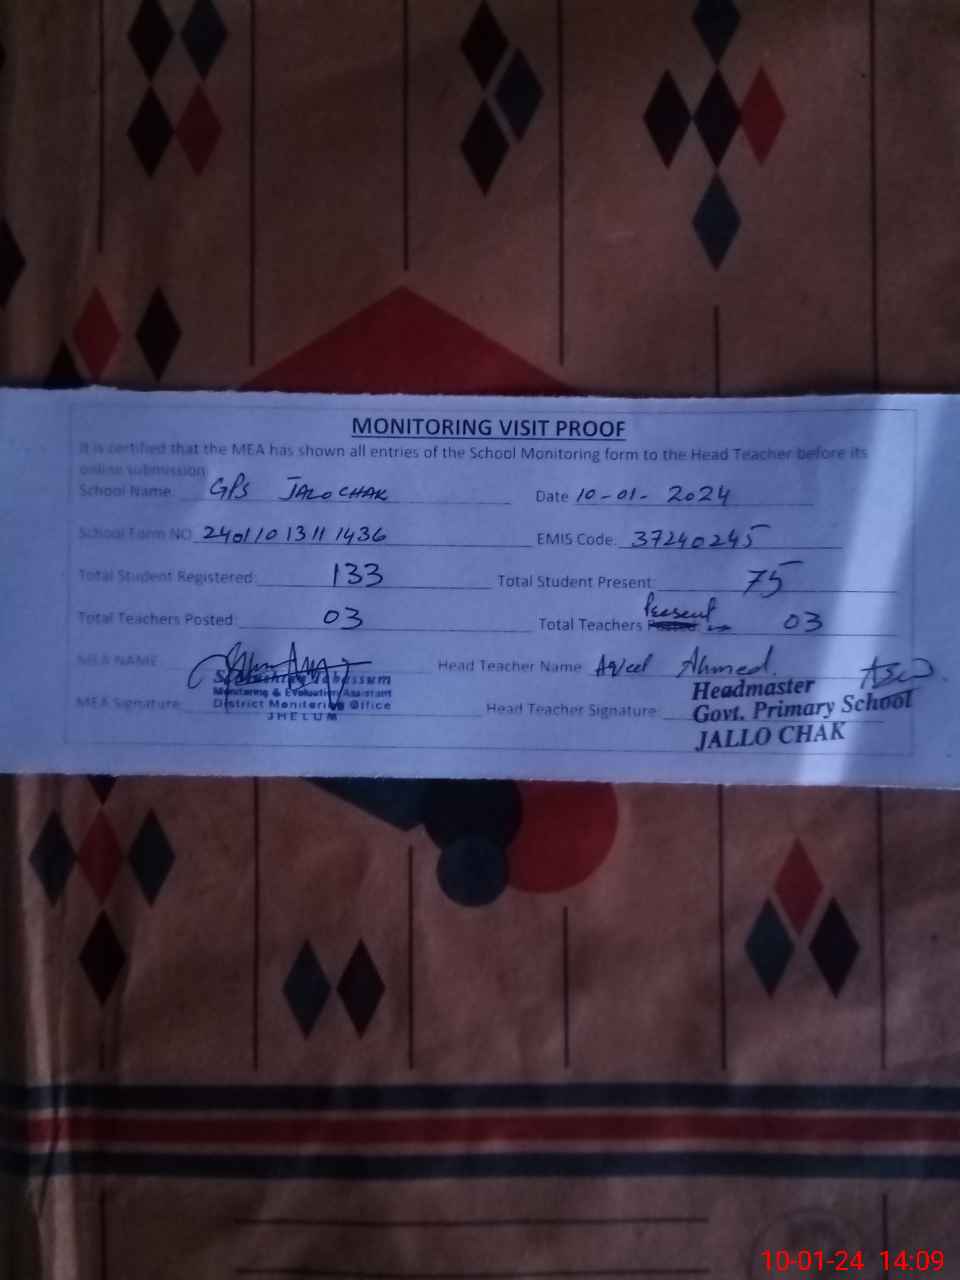 MONITORING VISIT PROOF
It is certified that the MEA has shown all entries of the School Monitoring form to the Head Teacher before its
online submission
School Name: GPS JALO CHAK Date 10-01-2024
School Form NO 2401101311 1436 EMIS Code: 37240245
Total Student Registered: 133 Total Student Present: 75
Total Teachers Posted: 03 Total Teachers Present 03
MEA NAME Head Teacher Name: Aqeel Ahmed
Monitoring & Evaluation Assistant
Headmaster
MEA Signature District Monitoring Office Head Teacher Signature: Govt. Primary School
JHELUM
JALLO CHAK
10-01-24 14:09